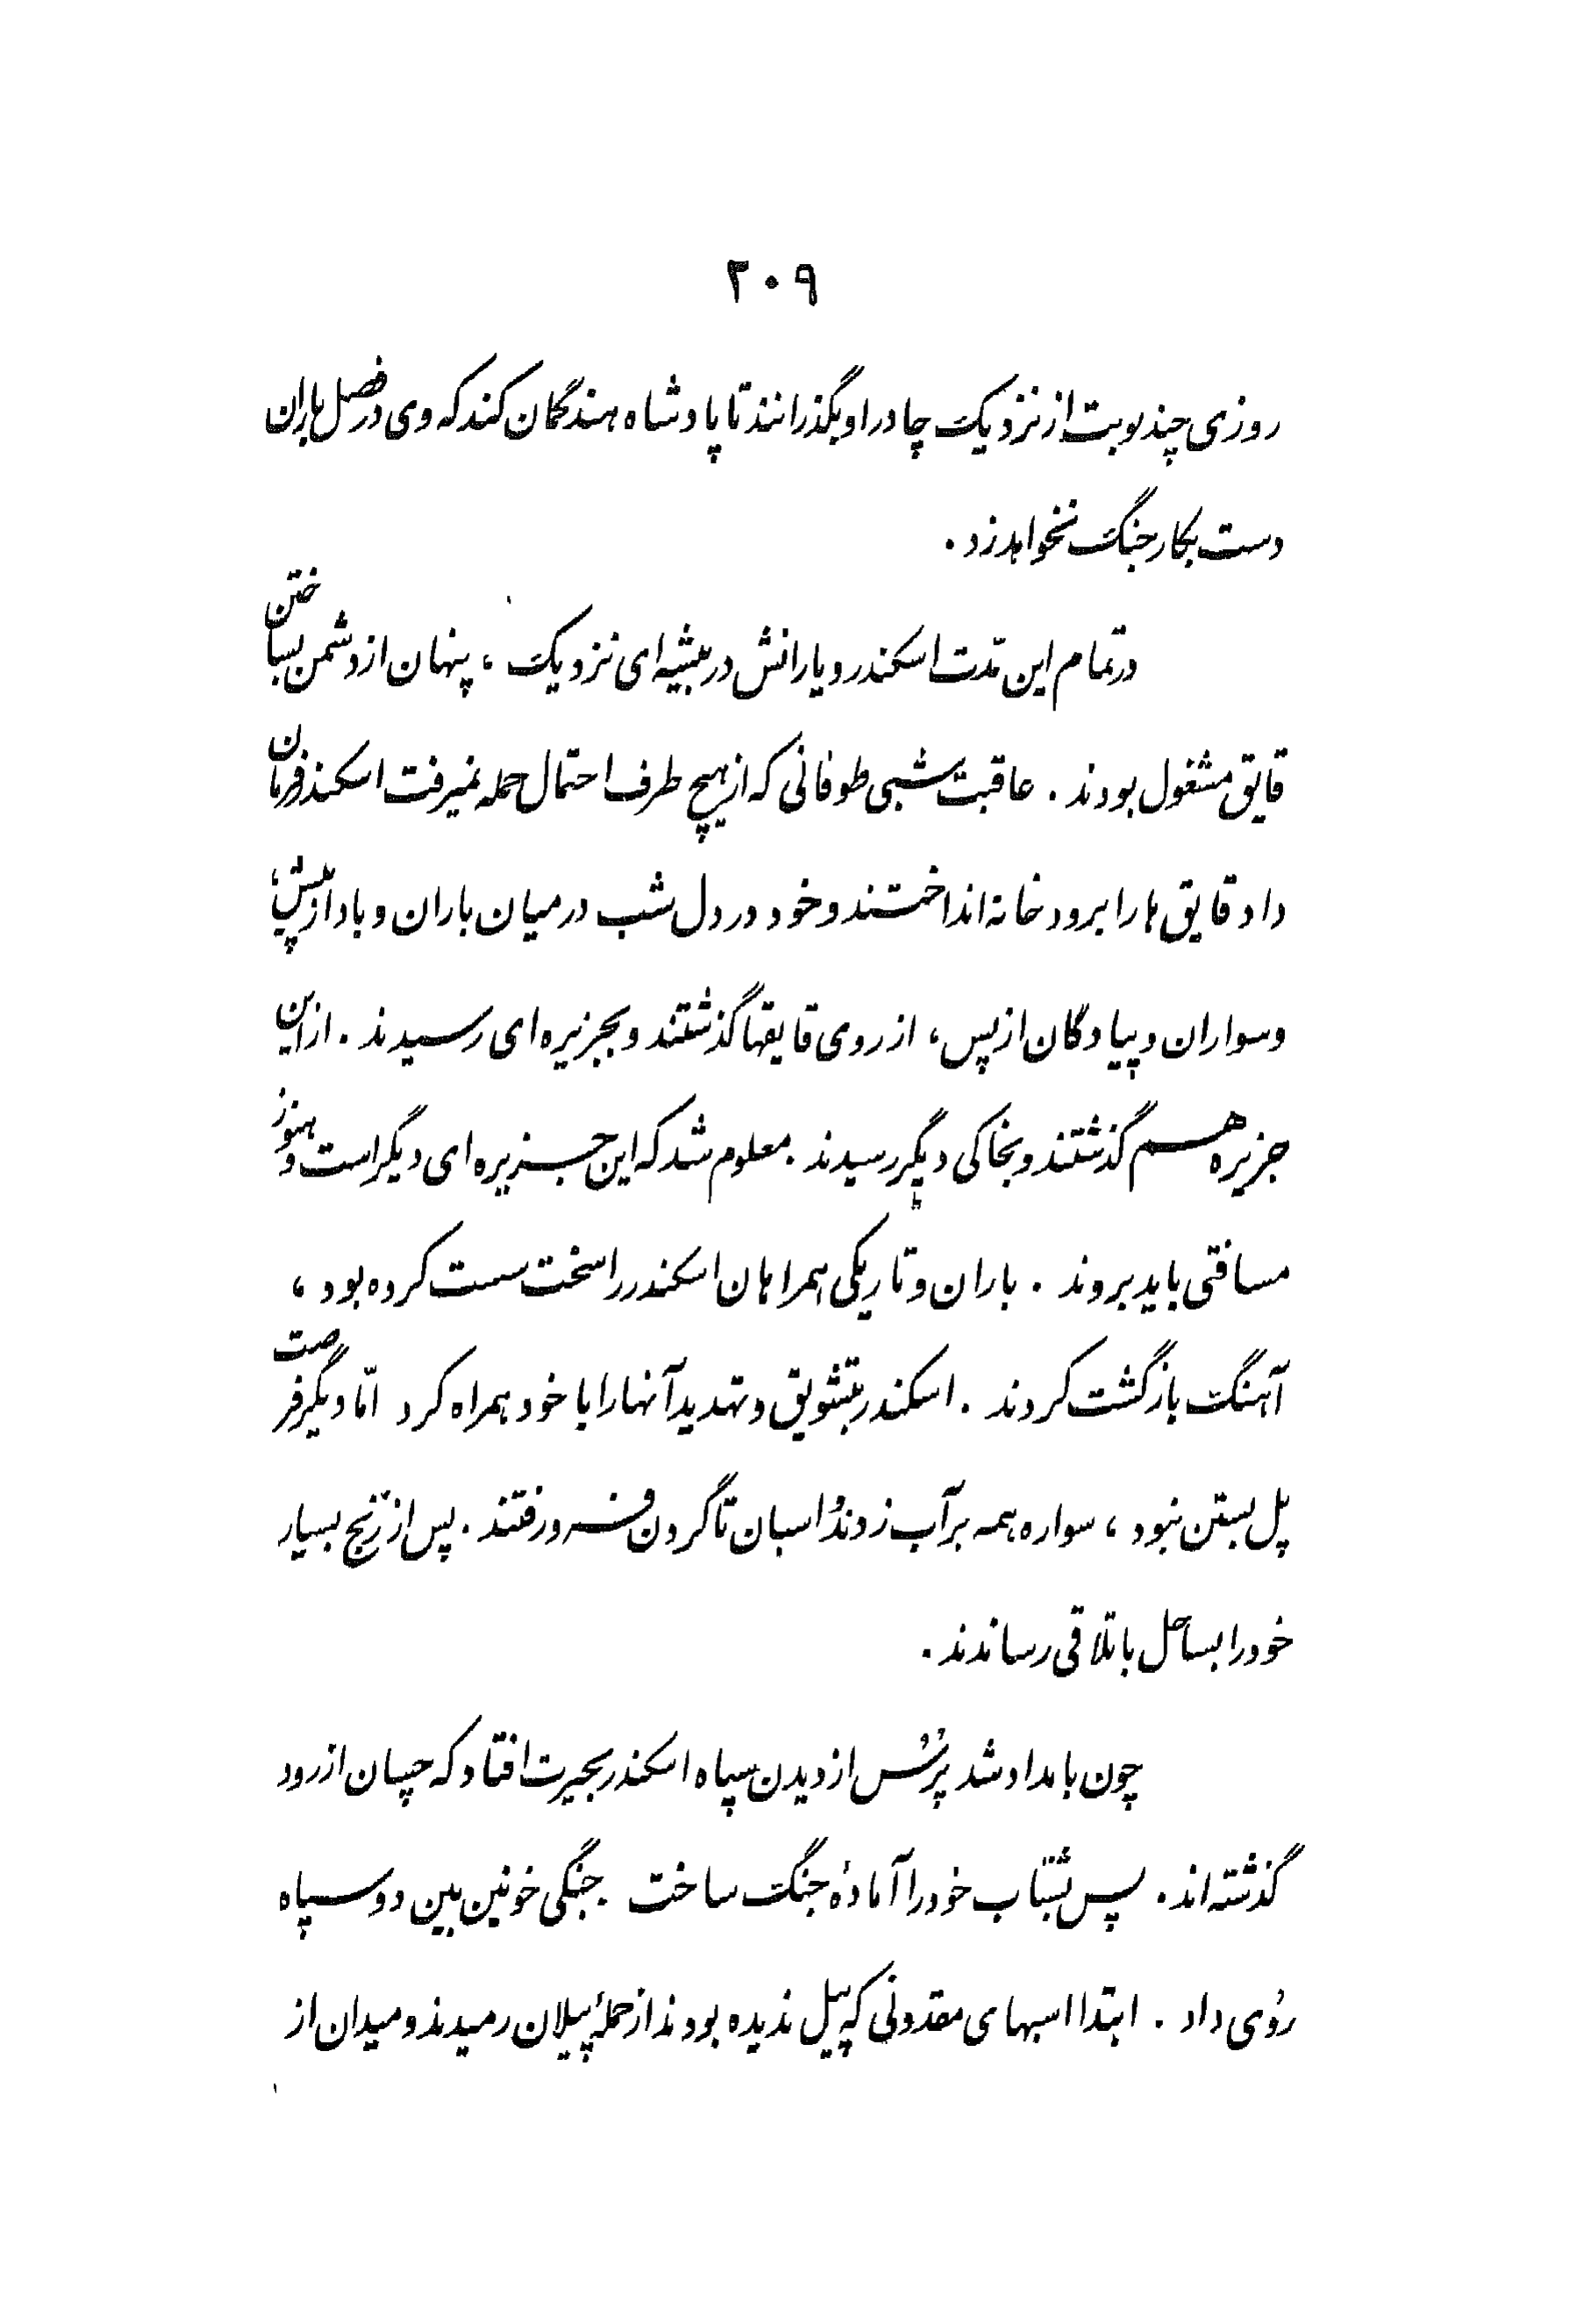 ۲۰۹
روزی چند نوبت از نزدیک چادر او بگذرانند تا پادشاه هند گمان کند که وی در فصل باران
دست بکار جنگ نخواهد زد .
در تمام این مدّت اسکندر و یارانش در بیشه ای نزدیک ، پنهان از دشمن بساختن
قایق مشغول بودند . عاقبت شبی طوفانی که از هیچ طرف احتمال حمله نمیرفت اسکندر فرمان
داد قایق ها را برودخانه انداختند و خود در دل شب در میان باران و باد از پیش ،
و سواران و پیادگان از پس ، از روی قایقها گذشتند و بجزیره ای رسیدند . از این
جزیره هم گذشتند و بخاکی دیگر رسیدند . معلوم شد که این جزیره ای دیگر است و هنوز
مسافتی باید بروند . باران و تاریکی همراهان اسکندر را سخت سست کرده بود ،
آهنگ بازگشت کردند . اسکندر بتشویق و تهدید آنها را با خود همراه کرد امّا دیگر فرصت
پل بستن نبود ، سواره همه بر آب زدند و اسبان تا گردن فرو رفتند . پس از رنج بسیار
خود را بساحل باتلاقی رساندند .
چون بامداد شد پُرُس از دیدن سپاه اسکندر بحیرت افتاد که چسان از رود
گذشته اند . پس بشتاب خود را آمادهٔ جنگ ساخت . جنگی خونین بین دو سپاه
روی داد . ابتدا اسبهای مقدونی که پیل ندیده بودند از حملهٔ پیلان رمیدند و میدان از